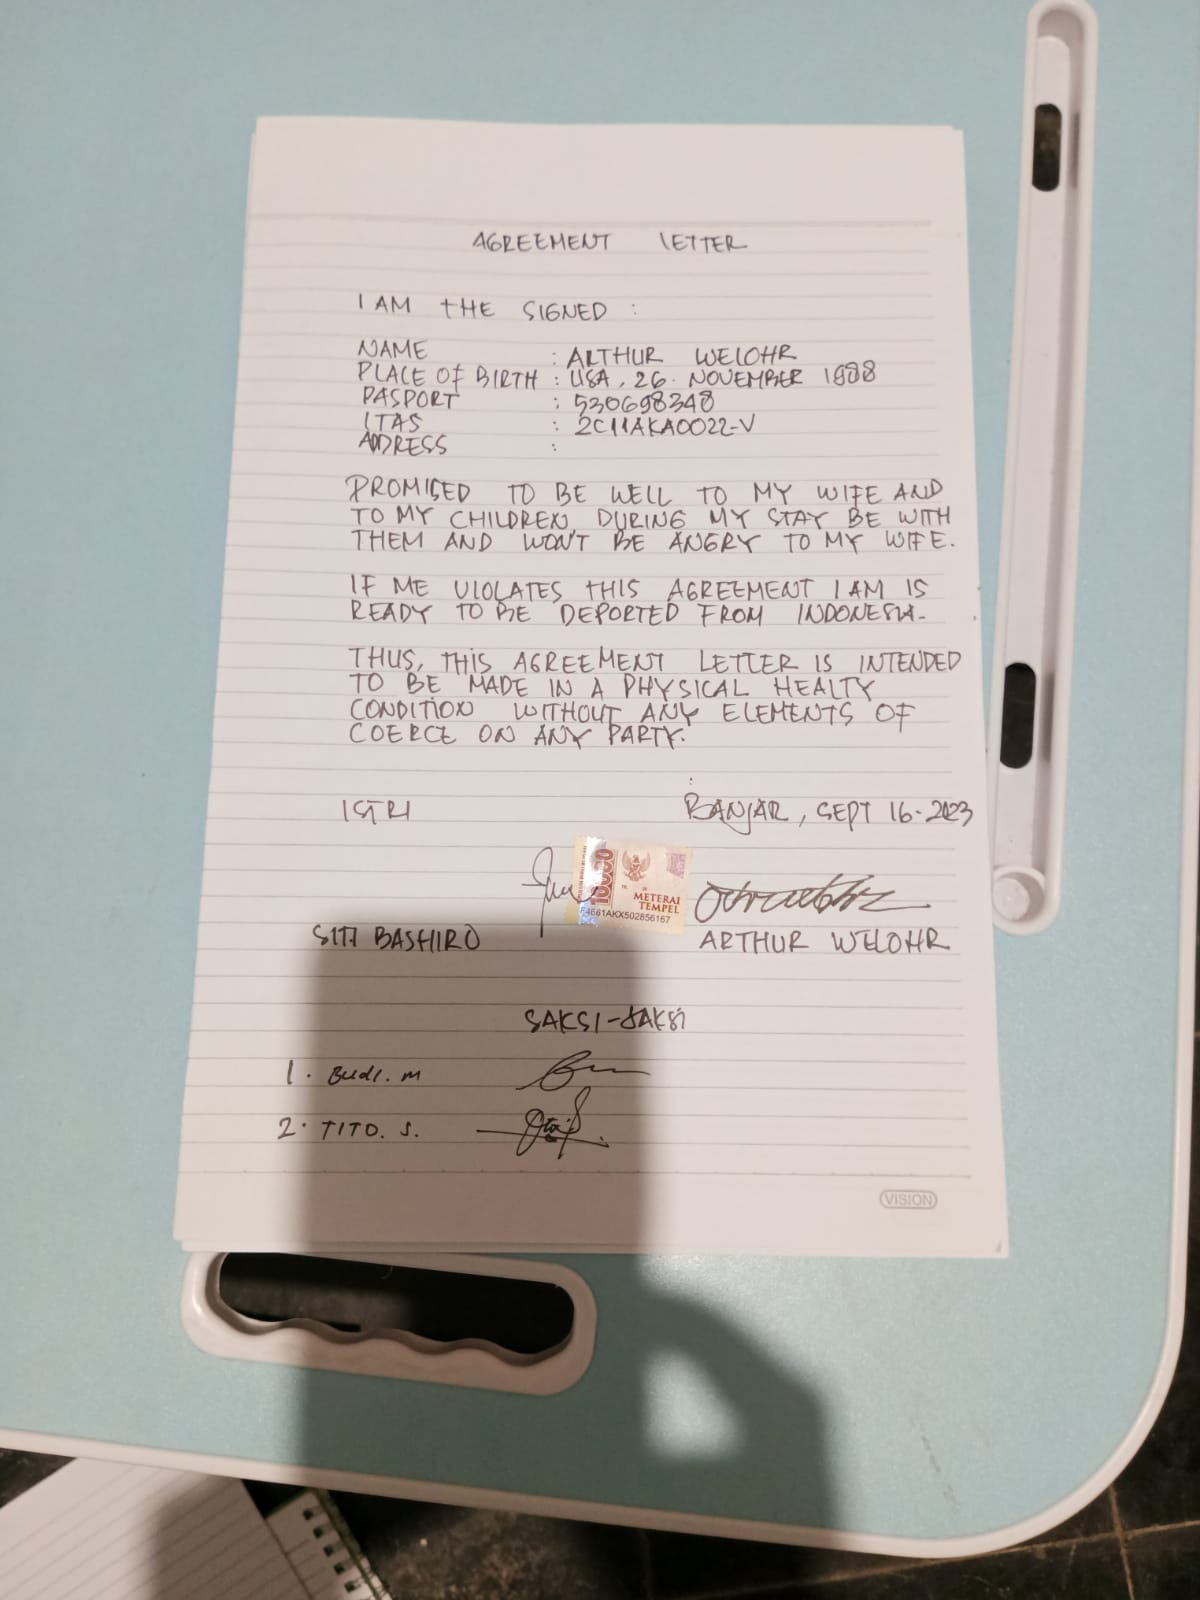 AGREEMENT LETTER
I AM THE SIGNED :
NAME : ARTHUR WELOHR
PLACE OF BIRTH : USA, 26. NOVEMBER 1988
PASPORT : 530698348
ITAS : 2C11AKA0022-V
ADDRESS :
PROMISED TO BE WELL TO MY WIFE AND
TO MY CHILDREN, DURING MY STAY BE WITH
THEM AND WON'T BE ANGRY TO MY WIFE.
IF ME VIOLATES THIS AGREEMENT I AM IS
READY TO BE DEPORTED FROM INDONESIA.
THUS, THIS AGREEMENT LETTER IS INTENDED
TO BE MADE IN A PHYSICAL HEALTY
CONDITION WITHOUT ANY ELEMENTS OF
COERCE ON ANY PARTY.
ISTRI BANJAR, SEPT 16-2023
10000
METERAI
TEMPEL
F4661AKX502856167
SITI BASHIRO ARTHUR WELOHR
SAKSI-SAKSI
1. BUDI. M
2. TITO. S.
VISION